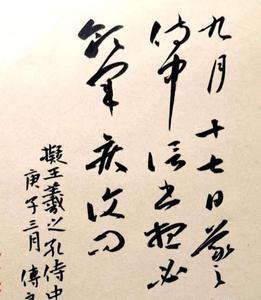 九月十七日羲之
侍中信書想必
領軍疾後問
擬王羲之孔侍中
庚子三月傅